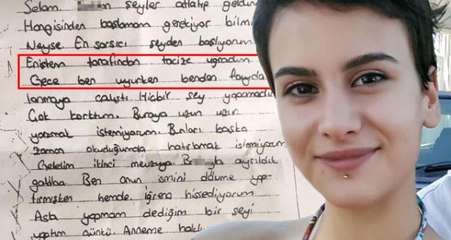 Selam. şeyler atlatıp geldim
Hangisinden başlamam gerekiyor bilmi
Neyse En sarsıcı şeyden başlıyorum.
Eniştem tarafından tacize uğradım.
Gece ben uyurken benden fayda
lanmaya çalıştı Hiçbir şey yapamadım
Çok korktum. Buraya uzun uzun
yazmak istemiyorum. Bunları başka
zaman okuduğumda hatırlamak istemiyorum
Gelelim ikinci mevzuya ayrıldık
galiba. Ben onun ismini dövme yap-
tırmıştım hemde. İğrenç hissediyorum
Asla yapmam dediğim bir şeyi
yaptım çünkü. Anneme